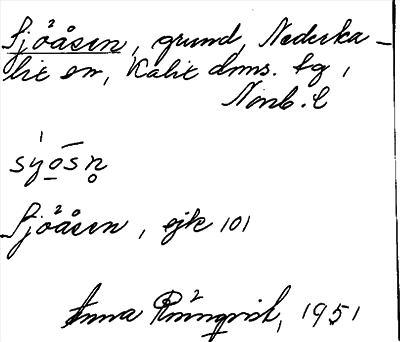 Sjöåsen, grund, Nederka-
lix sn, Kalix dms. tg,
Norrb. l
syosn
Sjöåsen, ejk 101
Anna Rönnqvist, 1951